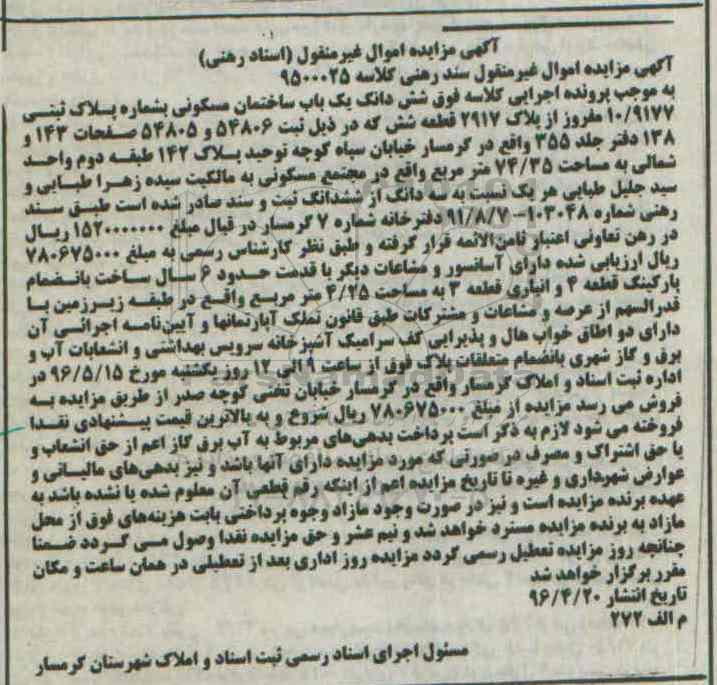 آگهی مزایده اموال غیرمنقول (اسناد رهنی)
آگهی مزایده اموال غیرمنقول سند رهنی کلاسه ۹۵۰۰۰۲۵
به موجب پرونده اجرایی کلاسه فوق شش دانگ یک باب ساختمان مسکونی بشماره پلاک ثبتی
۱۰/۹۱۷۷ مفروز از پلاک ۲۹۱۷ قطعه شش که در ذیل ثبت ۵۴۸۰۶ و ۵۴۸۰۵ صفحات ۱۴۳ و
۱۳۸ دفتر جلد ۳۵۵ واقع در گرمسار خیابان سپاه کوچه توحید پلاک ۱۴۲ طبقه دوم واحد
شمالی به مساحت ۷۴/۳۵ متر مربع واقع در مجتمع مسکونی به مالکیت سیده زهرا طبایی و
سید جلیل طبایی هر یک نسبت به سه دانگ از ششدانگ ثبت و سند صادر شده است طبق سند
رهنی شماره ۱۰۳۰۴۸-۹۱/۸/۷ دفترخانه شماره ۷ گرمسار در قبال مبلغ ۱۵۲۰۰۰۰۰۰۰ ریال
در رهن تعاونی اعتبار ثامن‌الائمه قرار گرفته و طبق نظر کارشناس رسمی به مبلغ ۷۸۰۶۷۵۰۰۰
ریال ارزیابی شده دارای آسانسور و مشاعات دیگر با قدمت حدود ۶ سال ساخت بانضمام
پارکینگ قطعه ۴ و انباری قطعه ۳ به مساحت ۴/۲۵ متر مربع واقع در طبقه زیرزمین با
قدرالسهم از عرصه و مشاعات و مشترکات طبق قانون تملک آپارتمانها و آیین‌نامه اجرائی آن
دارای دو اطاق خواب هال و پذیرایی کف سرامیک آشپزخانه سرویس بهداشتی و انشعابات آب و
برق و گاز شهری بانضمام متعلقات پلاک فوق از ساعت ۹ الی ۱۲ روز یکشنبه مورخ ۹۶/۵/۱۵ در
اداره ثبت اسناد و املاک گرمسار واقع در گرمسار خیابان تختی کوچه صدر از طریق مزایده به
فروش می رسد مزایده از مبلغ ۷۸۰۶۷۵۰۰۰ ریال شروع و به بالاترین قیمت پیشنهادی نقدا
فروخته می شود لازم به ذکر است پرداخت بدهی‌های مربوط به آب برق گاز اعم از حق انشعاب و
یا حق اشتراک و مصرف در صورتی که مورد مزایده دارای آنها باشد و نیز بدهی‌های مالیاتی و
عوارض شهرداری و غیره تا تاریخ مزایده اعم از اینکه رقم قطعی آن معلوم شده یا نشده باشد به
عهده برنده مزایده است و نیز در صورت وجود مازاد وجوه پرداختی بابت هزینه‌های فوق از محل
مازاد به برنده مزایده مسترد خواهد شد و نیم عشر و حق مزایده نقدا وصول می گردد ضمنا
چنانچه روز مزایده تعطیل رسمی گردد مزایده روز اداری بعد از تعطیلی در همان ساعت و مکان
مقرر برگزار خواهد شد
تاریخ انتشار ۹۶/۴/۲۰
م الف ۲۷۲
مسئول اجرای اسناد رسمی ثبت اسناد و املاک شهرستان گرمسار